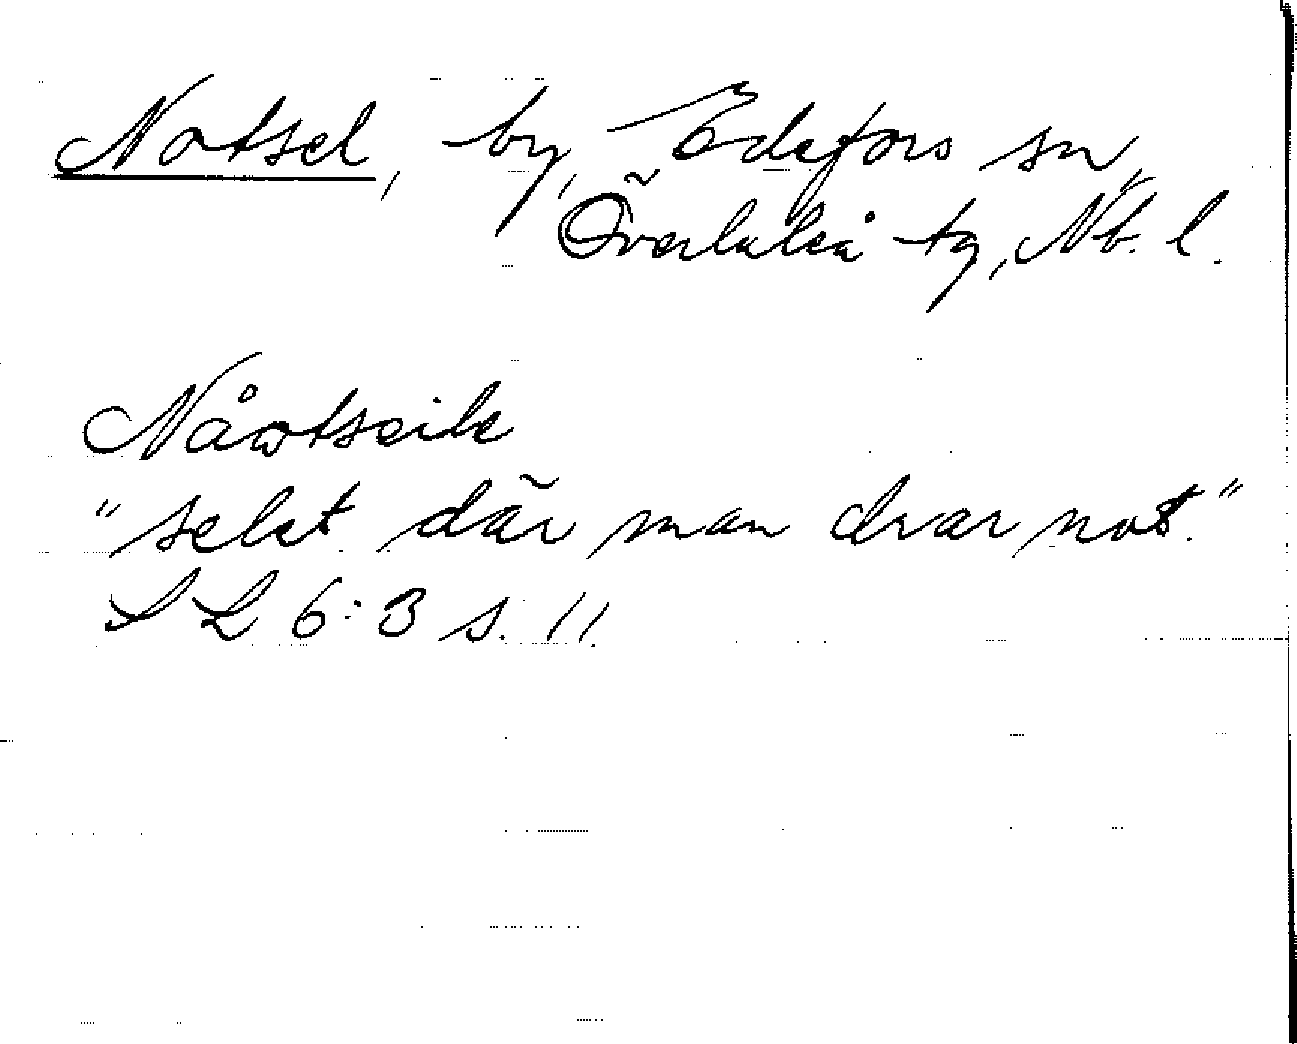 Notsel, by, Edefors sn,
Överluleå tg, Nb. l.
Nåωtseile
"selet där man drar not."
SL 6:3 s. 11